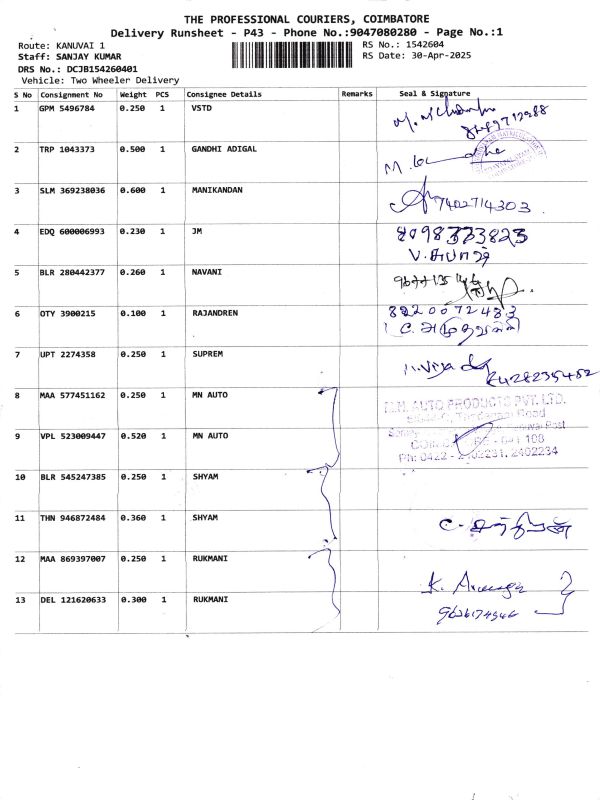 THE PROFESSIONAL COURIERS, COIMBATORE
Delivery Runsheet - P43 - Phone No.:9047080280 - Page No.:1
Route: KANUVAI 1
RS No.: 1542604
Staff: SANJAY KUMAR
RS Date: 30-Apr-2025
DRS No.: DCJB154260401
Vehicle: Two Wheeler Delivery
S No Consignment No Weight PCS Consignee Details Remarks Seal & Signature
1 GPM 5496784 0.250 1 VSTD
2 TRP 1043373 0.500 1 GANDHI ADIGAL
3 SLM 369238036 0.600 1 MANIKANDAN
7402714303
4 EDQ 600006993 0.230 1 JM
8098333823
5 BLR 280442377 0.260 1 NAVANI
6 OTY 3900215 0.100 1 RAJANDREN
8220072483
7 UPT 2274358 0.250 1 SUPREM
8 MAA 577451162 0.250 1 MN AUTO
AUTO PRODUCTS PVT. LTD.
Road
9 VPL 523009447 0.520 1 MN AUTO
Post
Ph: 0422 - 2402231, 2402234
10 BLR 545247385 0.250 1 SHYAM
11 THN 946872484 0.360 1 SHYAM
12 MAA 869397007 0.250 1 RUKMANI
13 DEL 121620633 0.300 1 RUKMANI